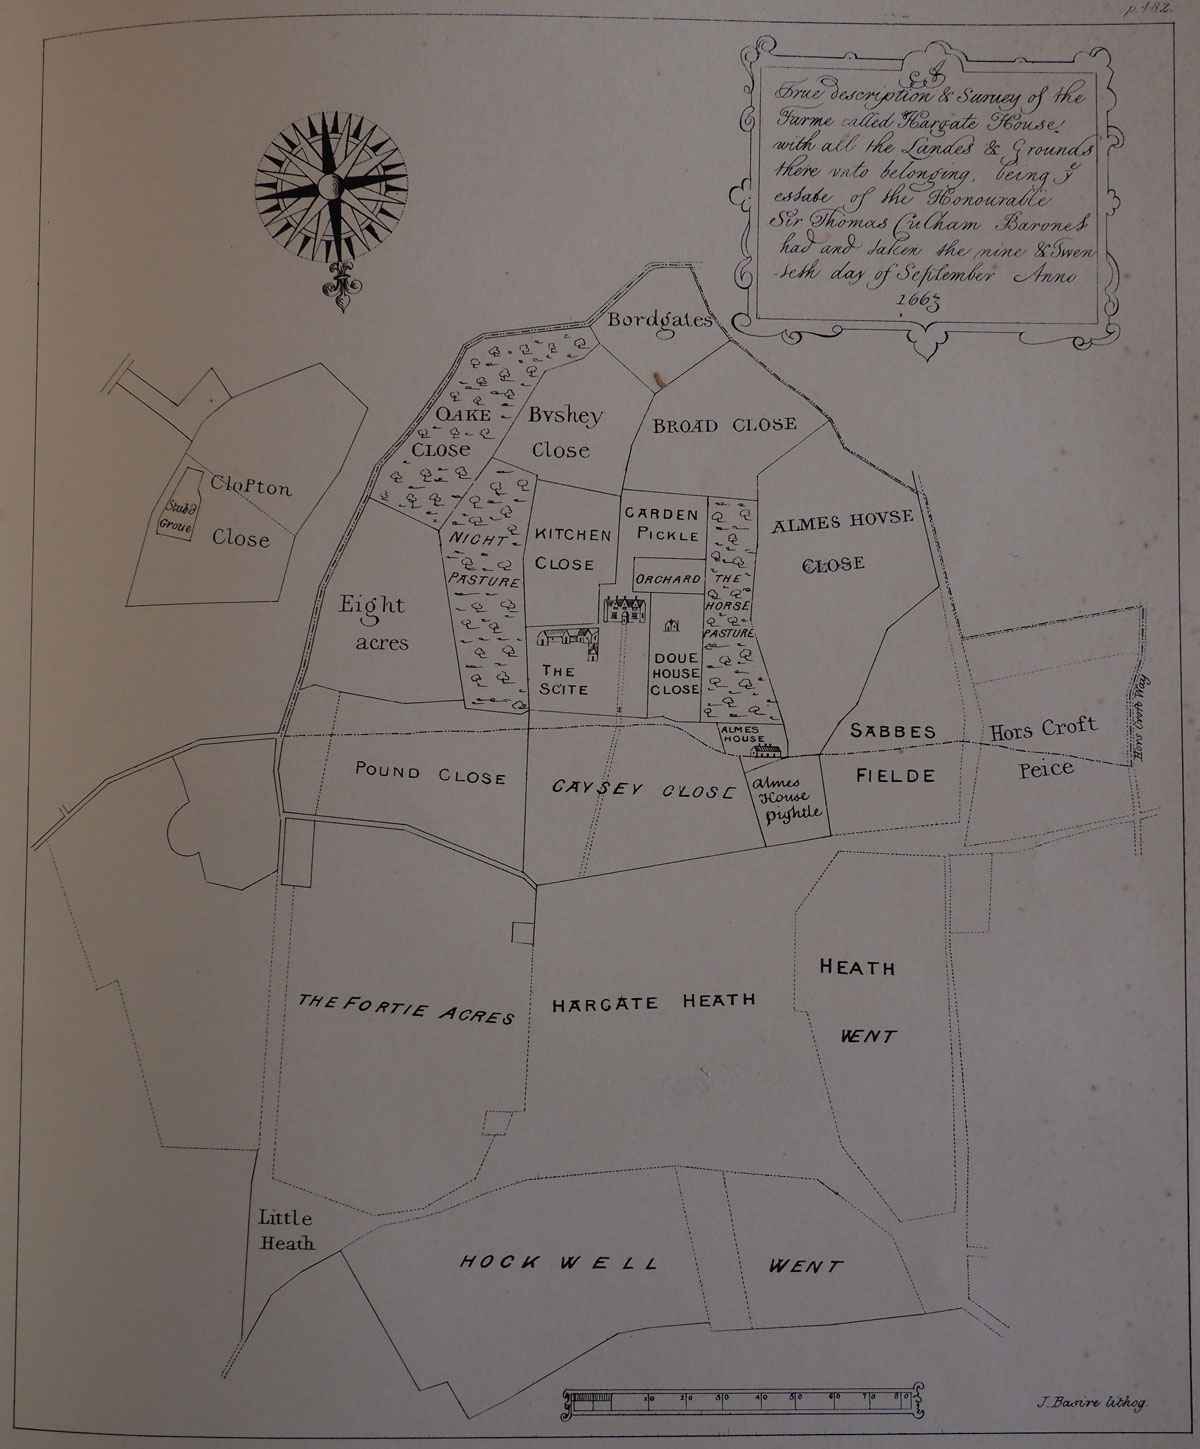 p. 482.
A
True description & Survey of the
Farme called Hargate House,
with all the Landes & Grounds
there vnto belonging, being yͤ
estate of the Honourable
Sir Thomas Culham Baronet
had and taken the nine & Twen
-teth day of September Anno
1663
Bordgates
OAKE
CLOSE
Bvshey
Close
BROAD CLOSE
Clopton
Close
Stubd
Groue
NIGHT
PASTURE
KITCHEN
CLOSE
GARDEN
PICKLE
ORCHARD
THE
HORSE
PASTURE
ALMES HOVSE
CLOSE
Eight
acres
THE
SCITE
DOUE
HOUSE
CLOSE
ALMES
HOUSE
SABBES
FIELDE
Hors Croft
Peice
Hors Croft Way
POUND CLOSE
CAYSEY CLOSE
Almes
House
pightle
THE FORTIE ACRES
HARGATE HEATH
HEATH
WENT
Little
Heath
HOCK WELL
WENT
10 20 30 40 50 60 70 80
J. Basire lithog.